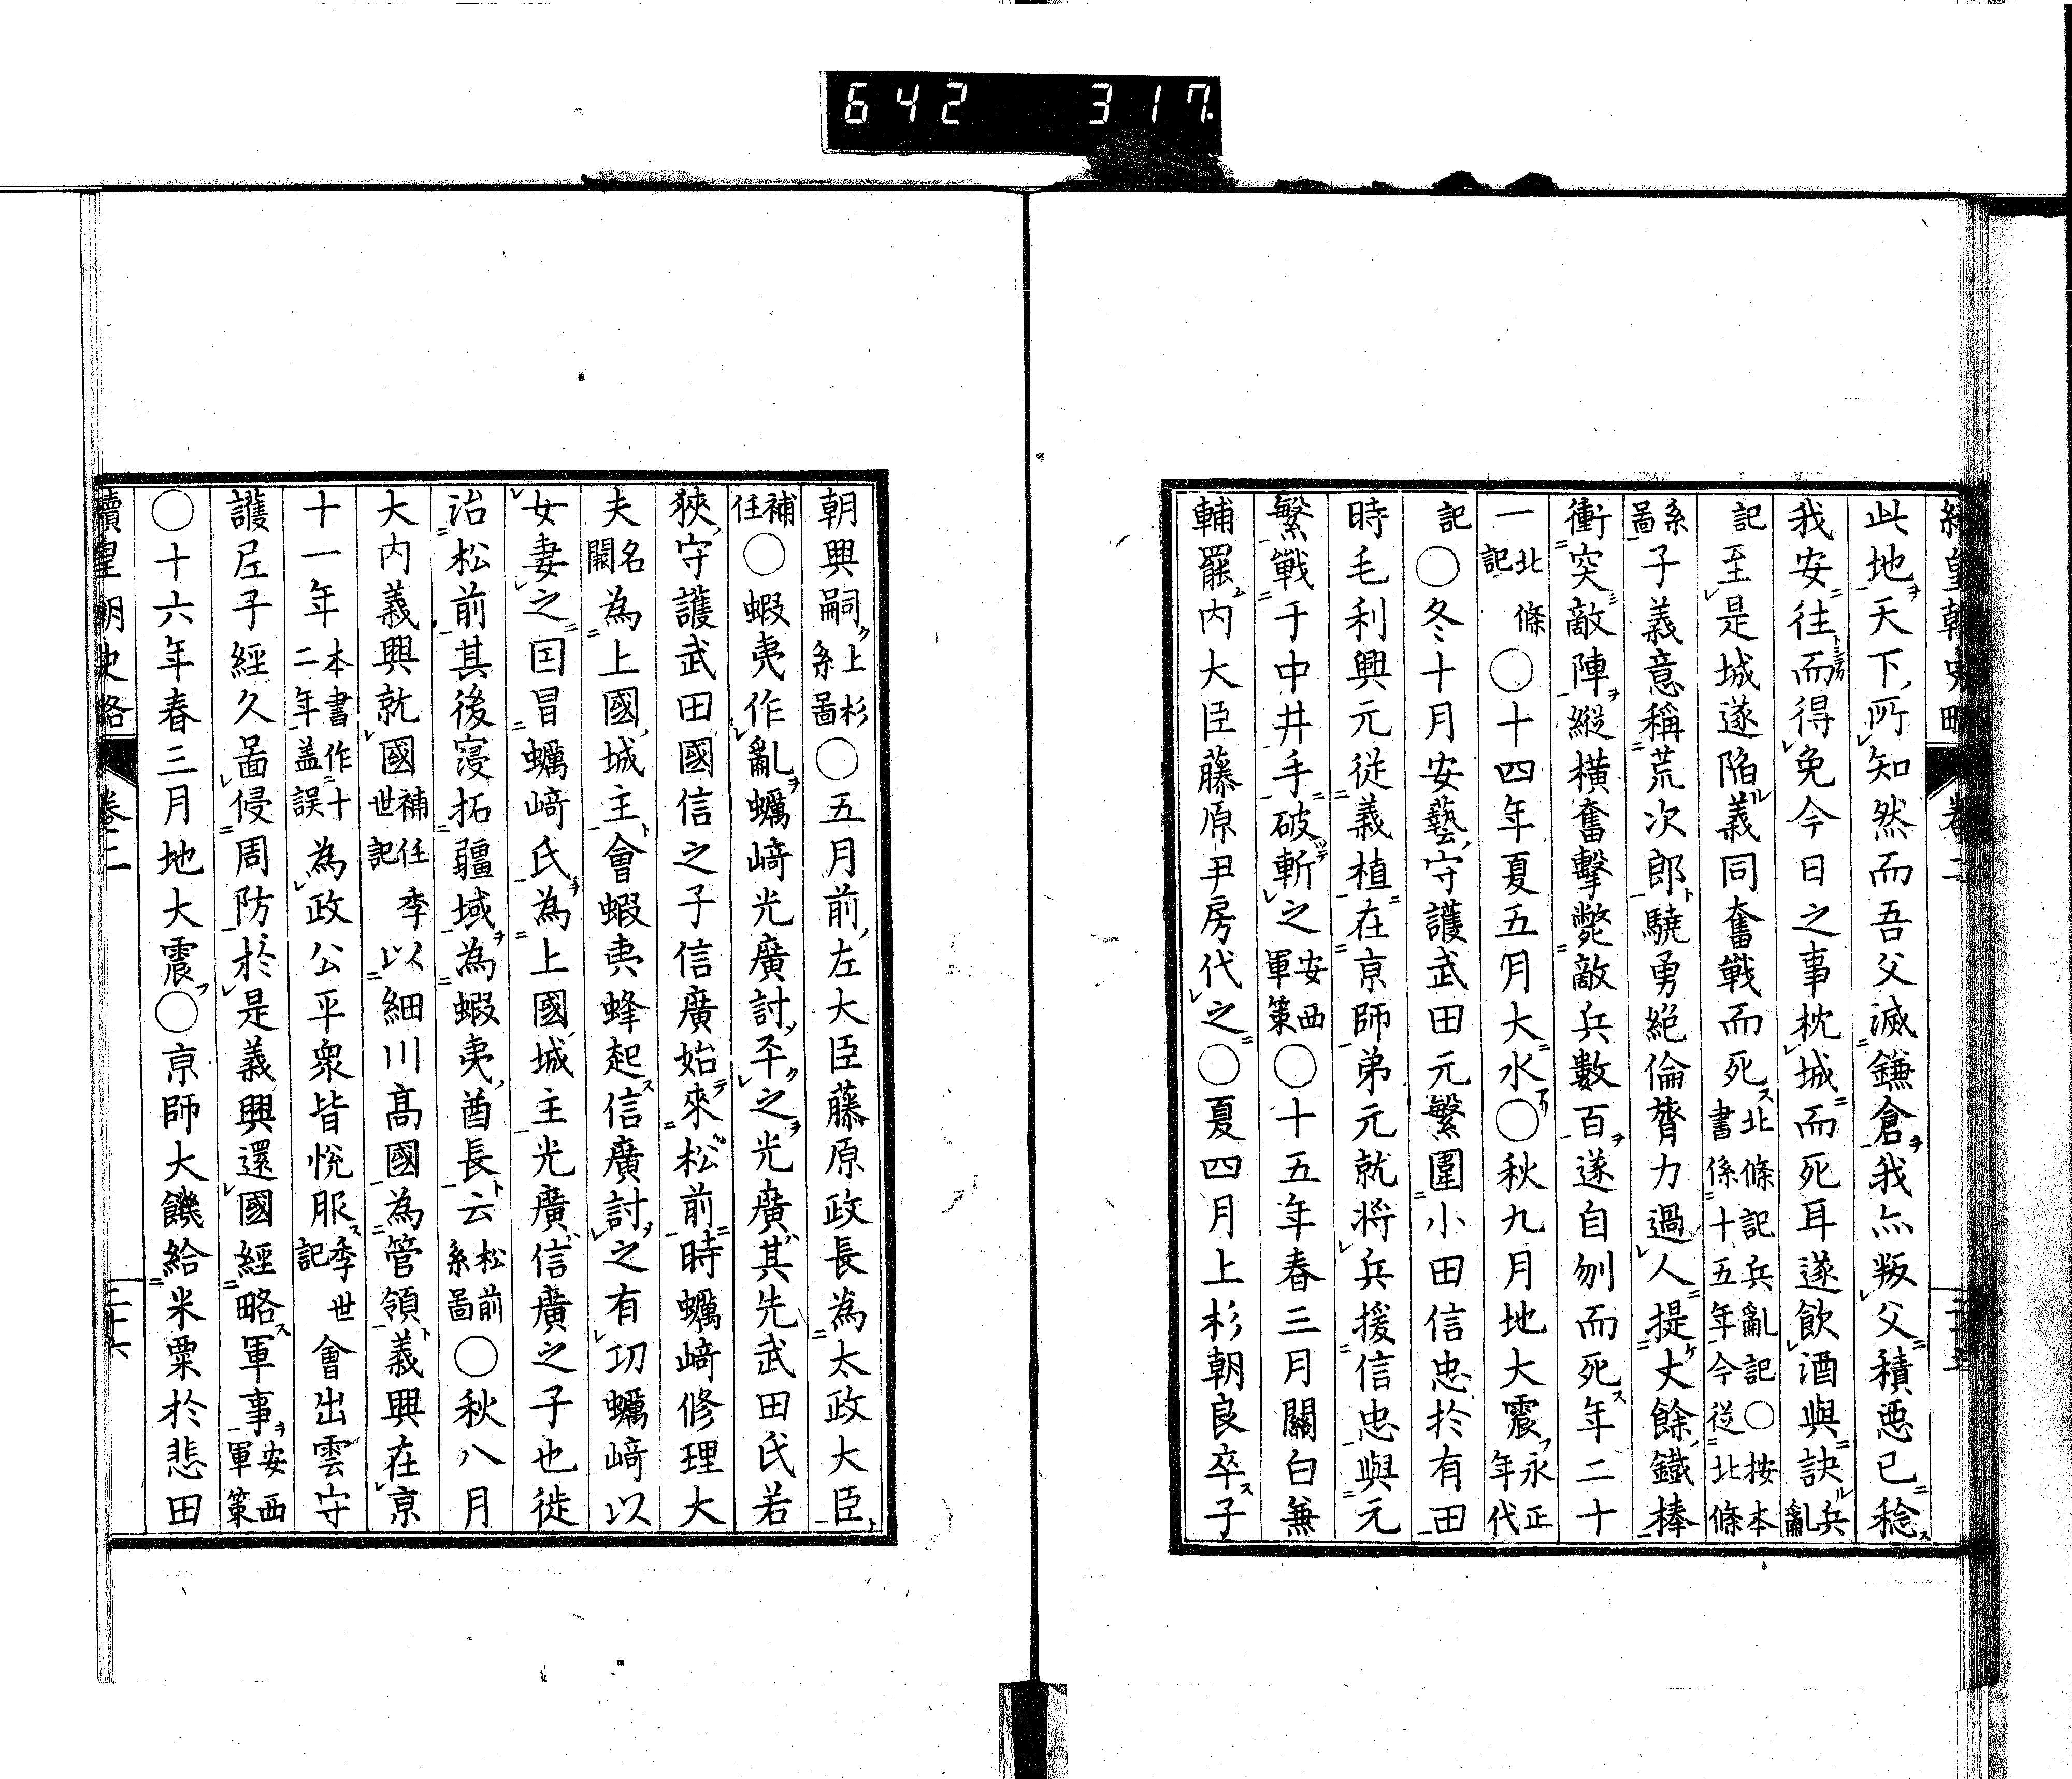 642 317
續皇朝史略 卷二
此地天下所知然而吾父滅鎌倉我亦叛父積惡已稔
我安往而得免今日之事枕城而死耳遂飲酒與訣兵亂
記至是城遂陷義同奮戰而死北條記兵亂記○按本書係十五年今從北條
系圖子義意稱荒次郎驍勇絕倫膂力過人提丈餘鐵棒
衝突敵陣縱橫奮擊斃敵兵數百遂自刎而死年二十
一北條記○十四年夏五月大水○秋九月地大震永正年代
記○冬十月安藝守護武田元繁圍小田信忠於有田
時毛利興元從義植在京師弟元就將兵援信忠與元
繁戰于中井手破斬之安西軍策○十五年春三月關白兼
輔罷內大臣藤原尹房代之○夏四月上杉朝良卒子
朝興嗣上杉系圖○五月前左大臣藤原政長為太政大臣
補任○蝦夷作亂蠣﨑光廣討平之光廣其先武田氏若
狹守護武田國信之子信廣始來松前時蠣﨑修理大
夫名闕為上國城主會蝦夷蜂起信廣討之有功蠣﨑以
女妻之因冒蠣﨑氏為上國城主光廣信廣之子也徙
治松前其後寖拓疆域為蝦夷酋長云松前系圖○秋八月
大內義興就國補任世記季以細川高國為管領義興在京
十一年本書作十二年蓋誤為政公平眾皆悅服季世記會出雲守
護尼子經久啚侵周防於是義興還國經略軍事安西軍策
○十六年春三月地大震○京師大饑給米粟於悲田
續皇朝史略 卷二 二十六